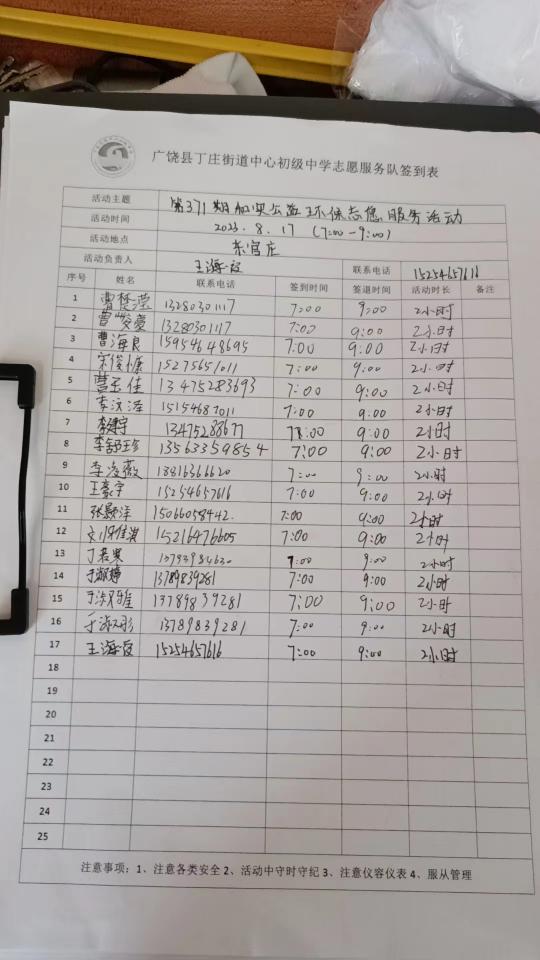 广饶县丁庄街道中心初级中学志愿服务队签到表
活动主题 第371期 公益环保志愿服务活动
活动时间 2023.8.17 (7:00-9:00)
活动地点 东官庄
活动负责人 王海霞 联系电话 15254657616
序号 姓名 联系电话 签到时间 签退时间 活动时长 备注
1 曹楚滢 13280301117 7:00 9:00 2小时
2 曹 13280301117 7:00 9:00 2小时
3 曹海良 15954648695 7:00 9:00 2小时
4 宋俊 15275651011 7:00 9:00 2小时
5 佳 13475283693 7:00 9:00 2小时
6 李 7:00 9:00 2小时
7 李 7:00 9:00 2小时
8 李 13563359854 7:00 9:00 2小时
9 李凌薇 7:00 9:00 2小时
10 王豪宇 15254657616 7:00 9:00 2小时
11 张 15066058442. 7:00 9:00 2小时
12 15216476605 7:00 9:00 2小时
13 丁若寒 7:00 9:00 2小时
14 于淑婷 13789839281 7:00 9:00 2小时
15 于 13789839281 7:00 9:00 2小时
16 于 13789839281 7:00 9:00 2小时
17 王海霞 15254657616 7:00 9:00 2小时
18
19
20
21
22
23
24
25
注意事项：1、注意各类安全 2、活动中守时守纪 3、注意仪容仪表 4、服从管理